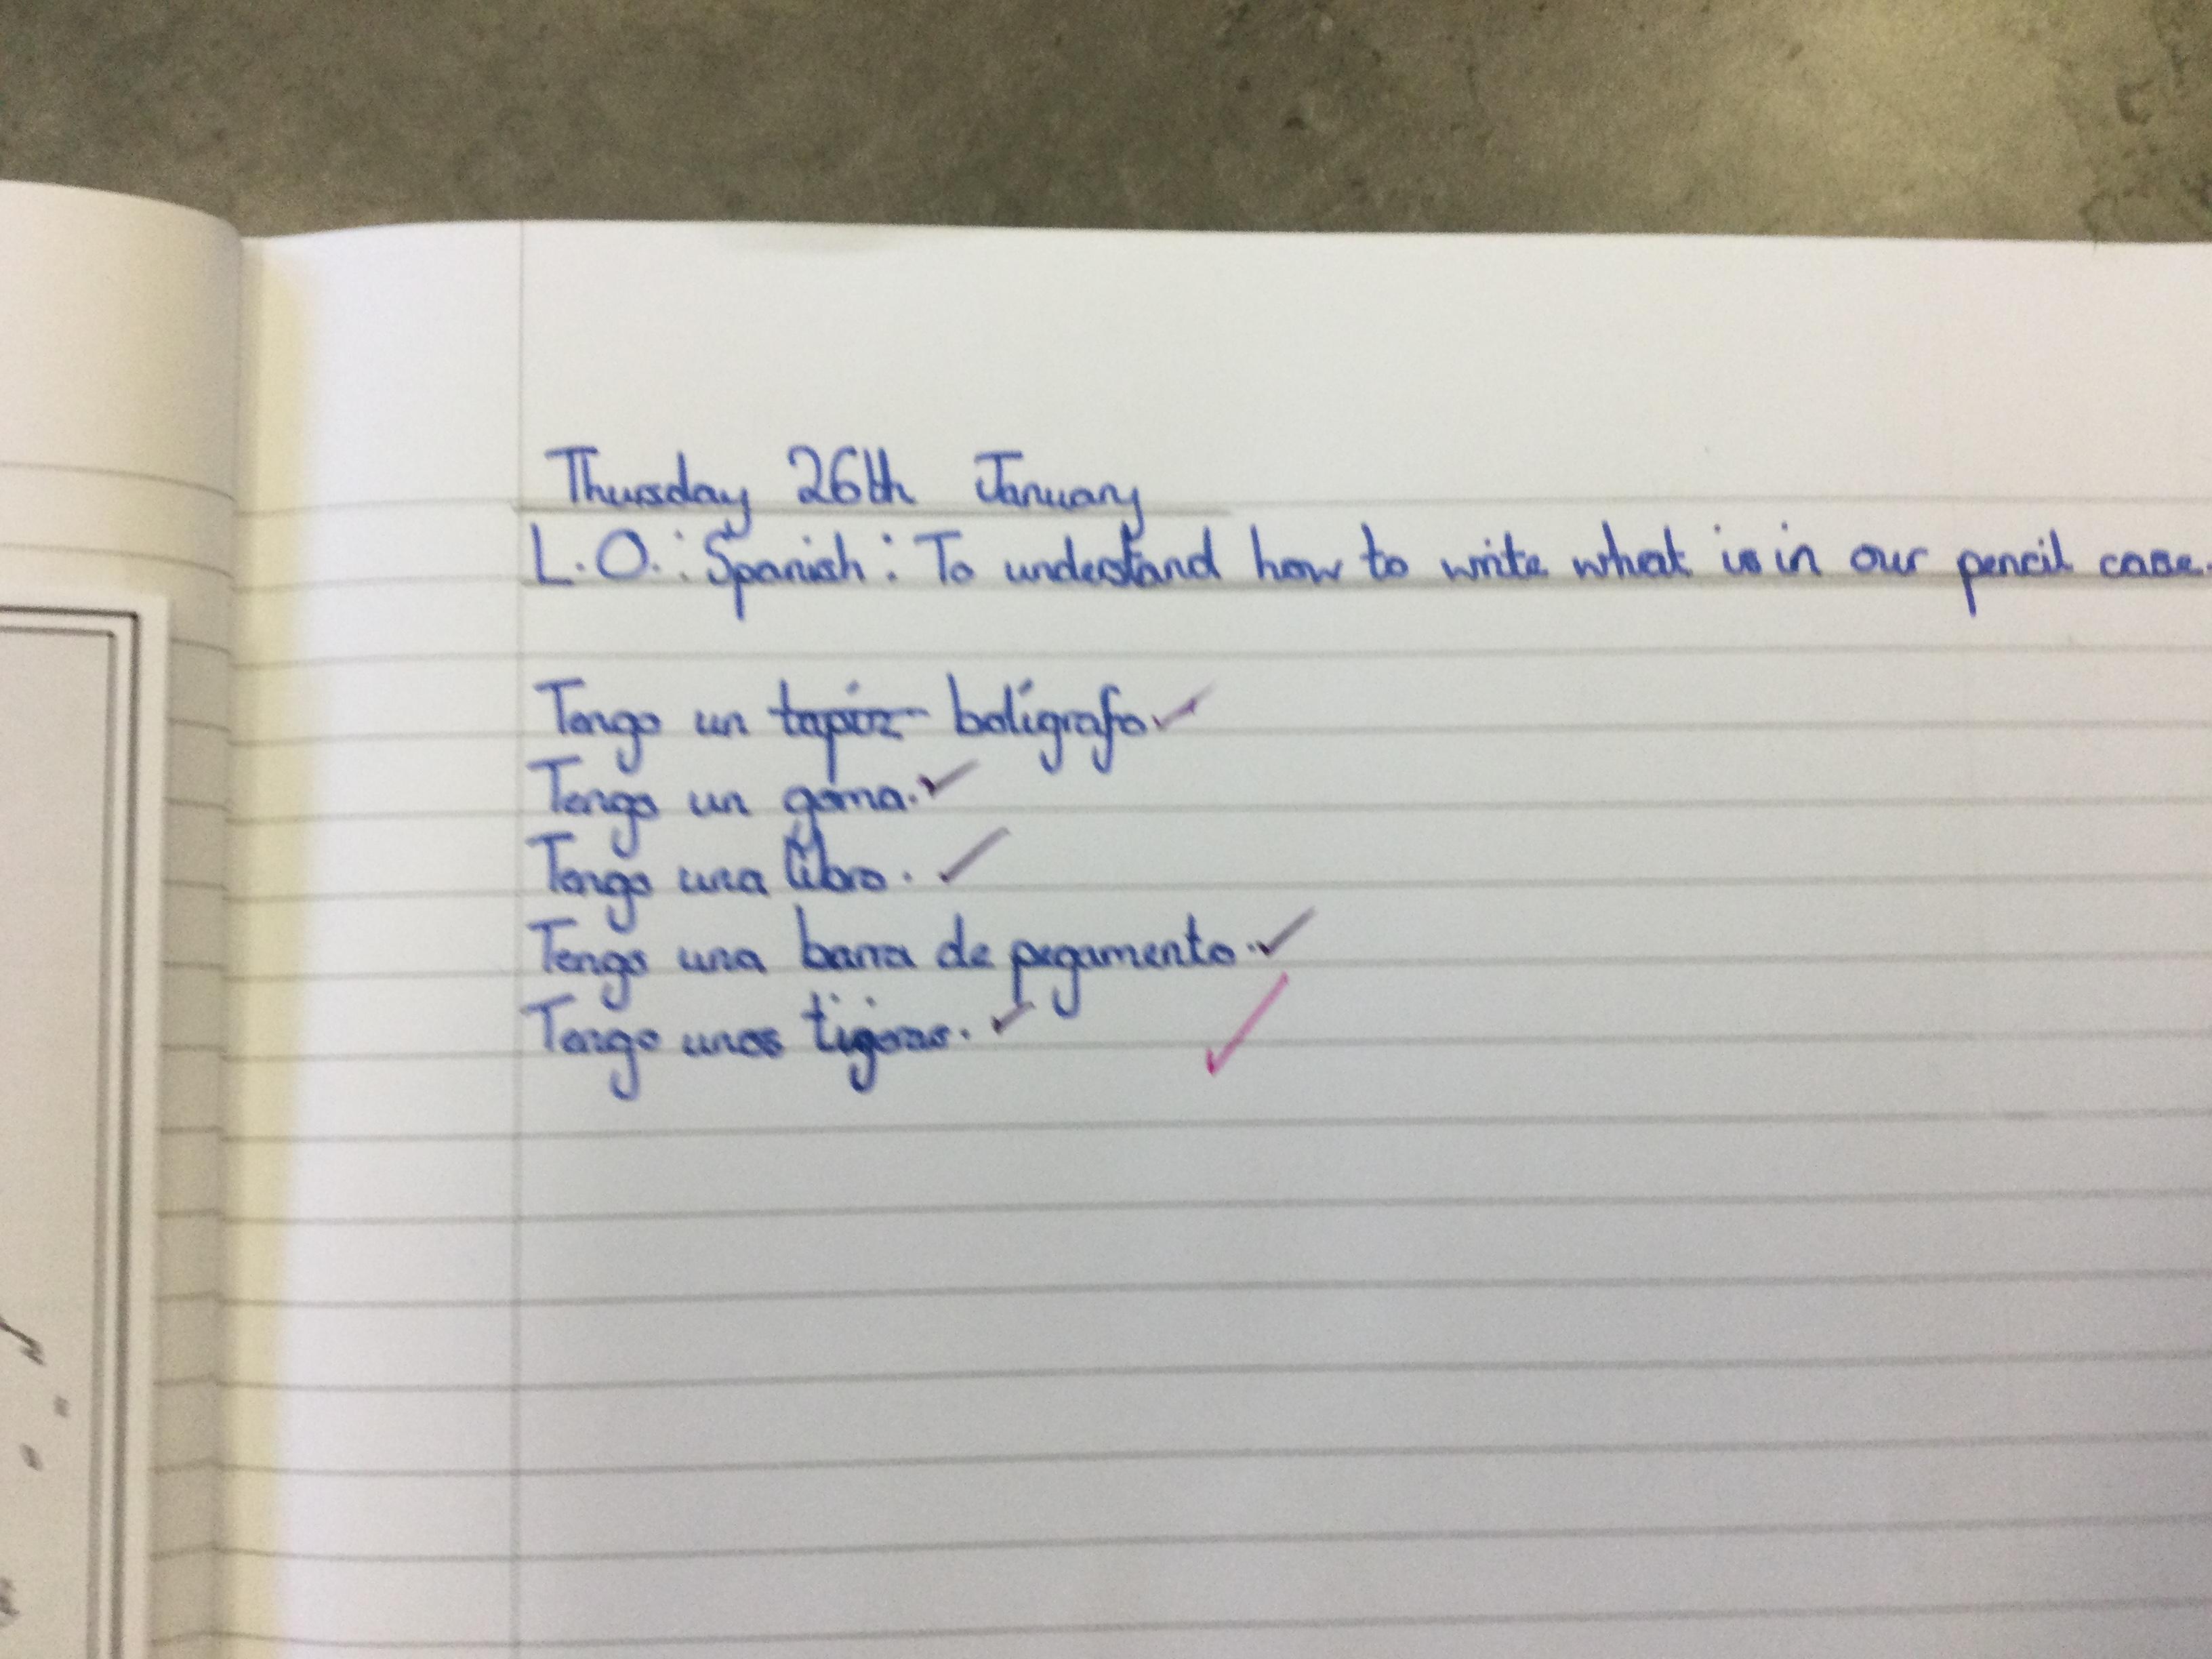 Thursday 26th January
L.O.: Spanish: To understand how to write what is in our pencil case.
Tengo un tapiz bolígrafo
Tengo un goma.
Tengo una libro.
Tengo una barra de pegamento.
Tengo unos tigeras.